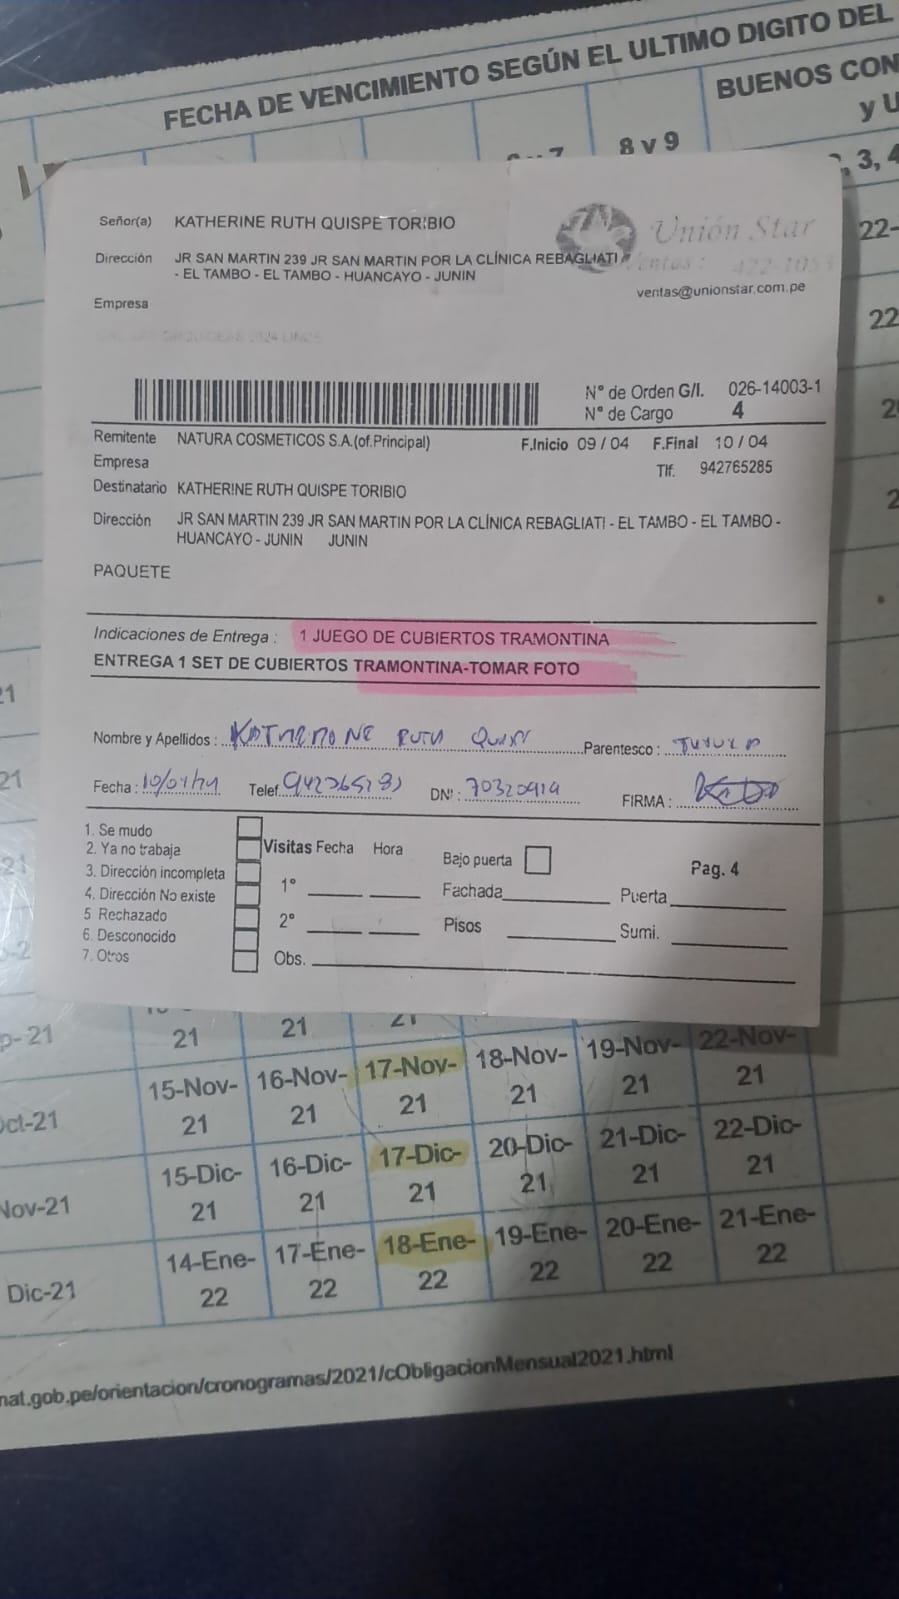 FECHA DE VENCIMIENTO SEGÚN EL ULTIMO DIGITO DEL
BUENOS CON
y U
8 y 9
, 3, 4
22-
22
Señor(a) KATHERINE RUTH QUISPE TORIBIO
Unión Star
Dirección JR SAN MARTIN 239 JR SAN MARTIN POR LA CLÍNICA REBAGLIATI
- EL TAMBO - EL TAMBO - HUANCAYO - JUNIN
ventas@unionstar.com.pe
Empresa
N° de Orden G/I. 026-14003-1
N° de Cargo 4
Remitente NATURA COSMETICOS S.A.(of.Principal) F.Inicio 09 / 04 F.Final 10 / 04
Empresa Tlf. 942765285
Destinatario KATHERINE RUTH QUISPE TORIBIO
Dirección JR SAN MARTIN 239 JR SAN MARTIN POR LA CLÍNICA REBAGLIATI - EL TAMBO - EL TAMBO -
HUANCAYO - JUNIN JUNIN
PAQUETE
Indicaciones de Entrega : 1 JUEGO DE CUBIERTOS TRAMONTINA
ENTREGA 1 SET DE CUBIERTOS TRAMONTINA-TOMAR FOTO
Nombre y Apellidos : RUTH Parentesco :
Fecha : Telef. DNI : FIRMA :
1. Se mudo
2. Ya no trabaja
3. Dirección incompleta
4. Dirección No existe
5 Rechazado
6. Desconocido
7. Otros
Visitas Fecha Hora
1°
2°
Obs.
Bajo puerta
Fachada Puerta
Pisos Sumi.
Pag. 4
p-21 21 21 21
15-Nov-21 16-Nov-21 17-Nov-21 18-Nov-21 19-Nov-21 22-Nov-21
Oct-21
15-Dic-21 16-Dic-21 17-Dic-21 20-Dic-21 21-Dic-21 22-Dic-21
Nov-21
14-Ene-22 17-Ene-22 18-Ene-22 19-Ene-22 20-Ene-22 21-Ene-22
Dic-21
nat.gob.pe/orientacion/cronogramas/2021/cObligacionMensual2021.html